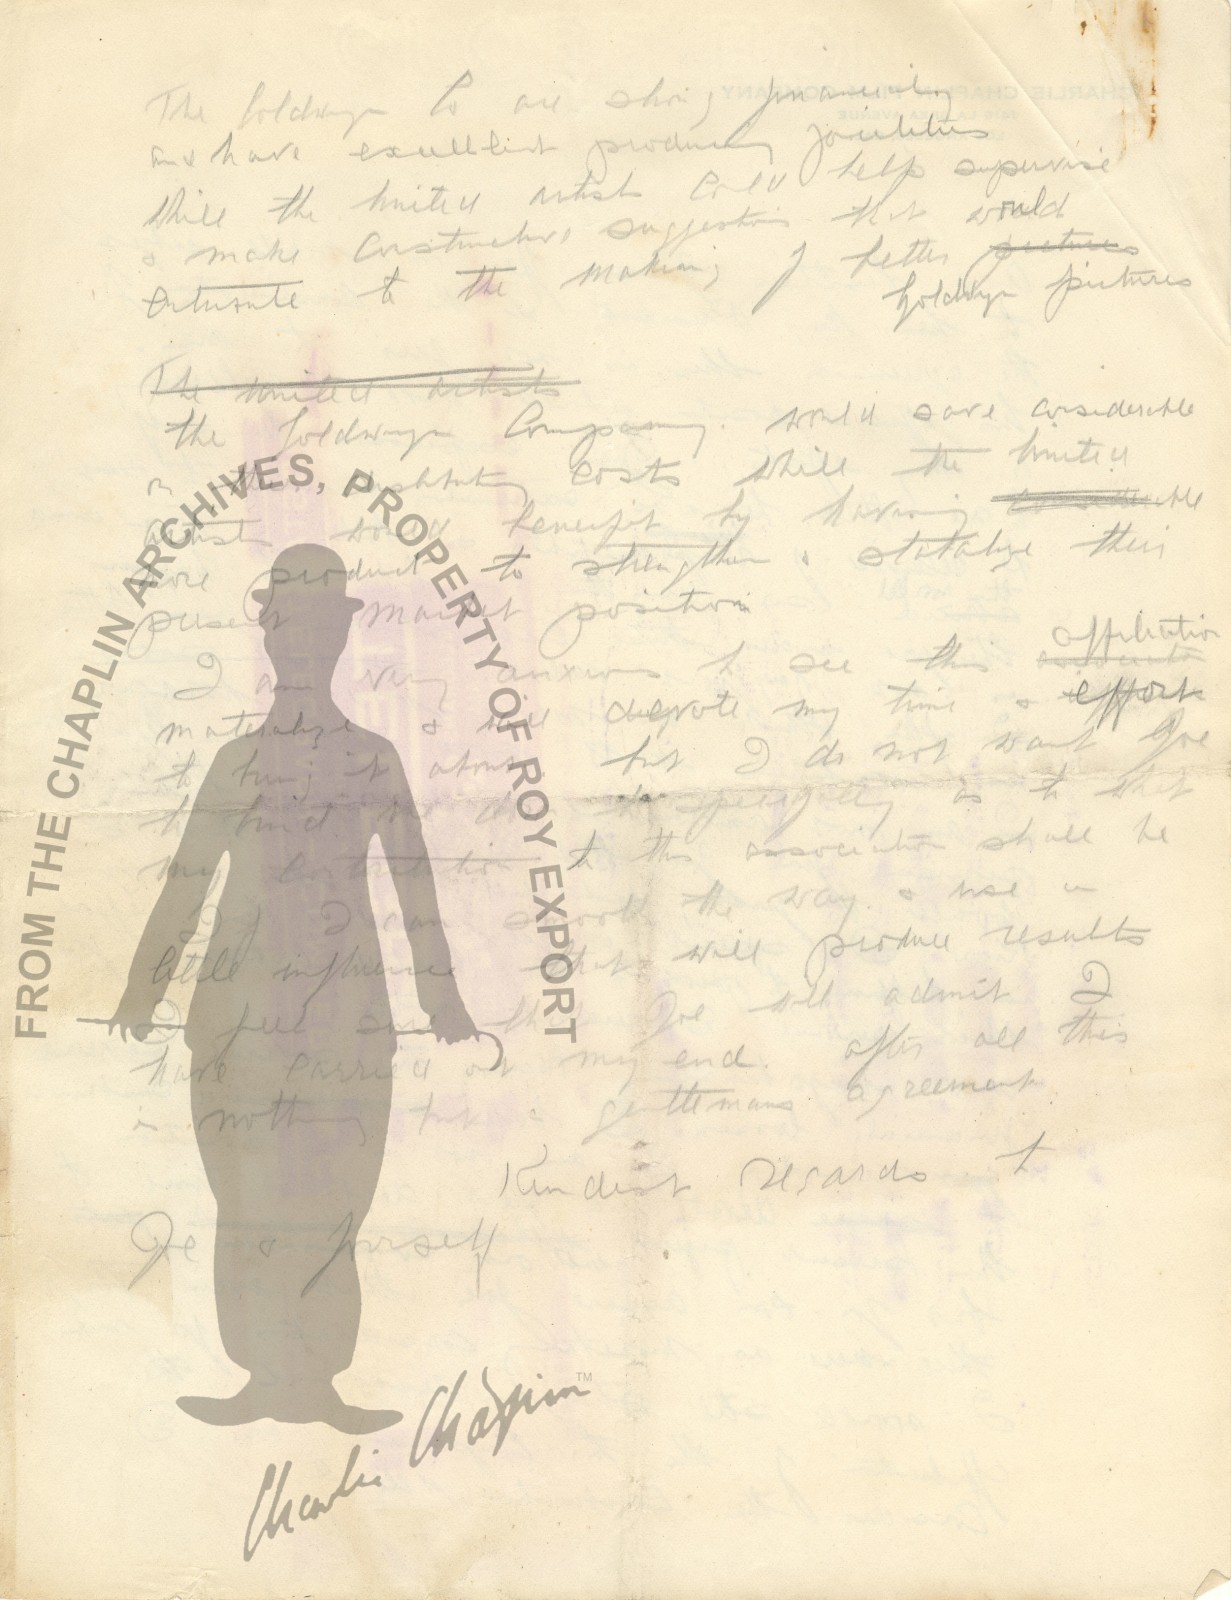 The Goldwyn Co are strong financially
and have excellent producing facilities
while the United artists could help supervise
& make constructive suggestions that would
to the making of better pictures
Goldwyn pictures
The United artists
the Goldwyn Company would save considerable
on the costs while the United
artists would benefit by having considerable
more product to strengthen & stabalize their
present market position
affiliation
I am very anxious to see this association
materialize & will devote my time & efforts
to bring it about but I do not want Joe
to bind me down to specifically as to what
my contribution to this association shall be
If I can smooth the way & use a
little influence that will produce results
I feel sure that Joe will admit I
have carried out my end. after all this
is nothing but a gentlemans agreement
Kindest regards to
Joe & yourself
FROM THE CHAPLIN ARCHIVES, PROPERTY OF ROY EXPORT
Charlie Chaplin™